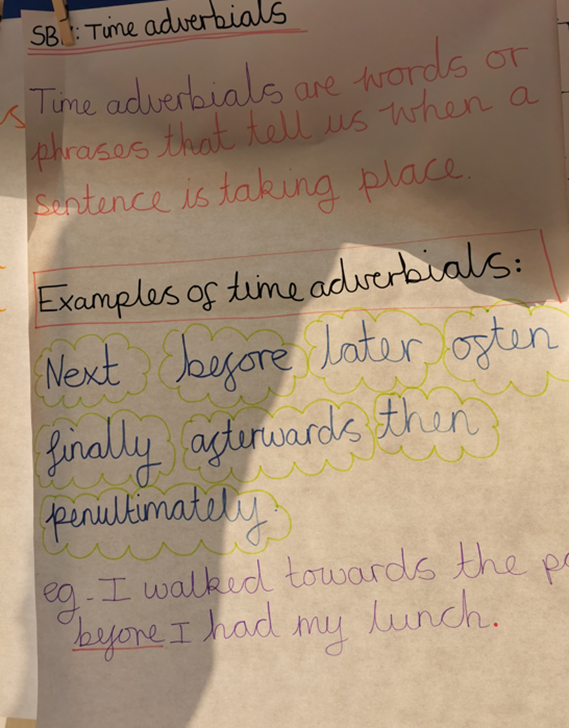 SB : Time adverbials
Time adverbials are words or
phrases that tell us when a
sentence is taking place.
Examples of time adverbials:
Next before later often
finally afterwards then
penultimately.
eg - I walked towards the
before I had my lunch.